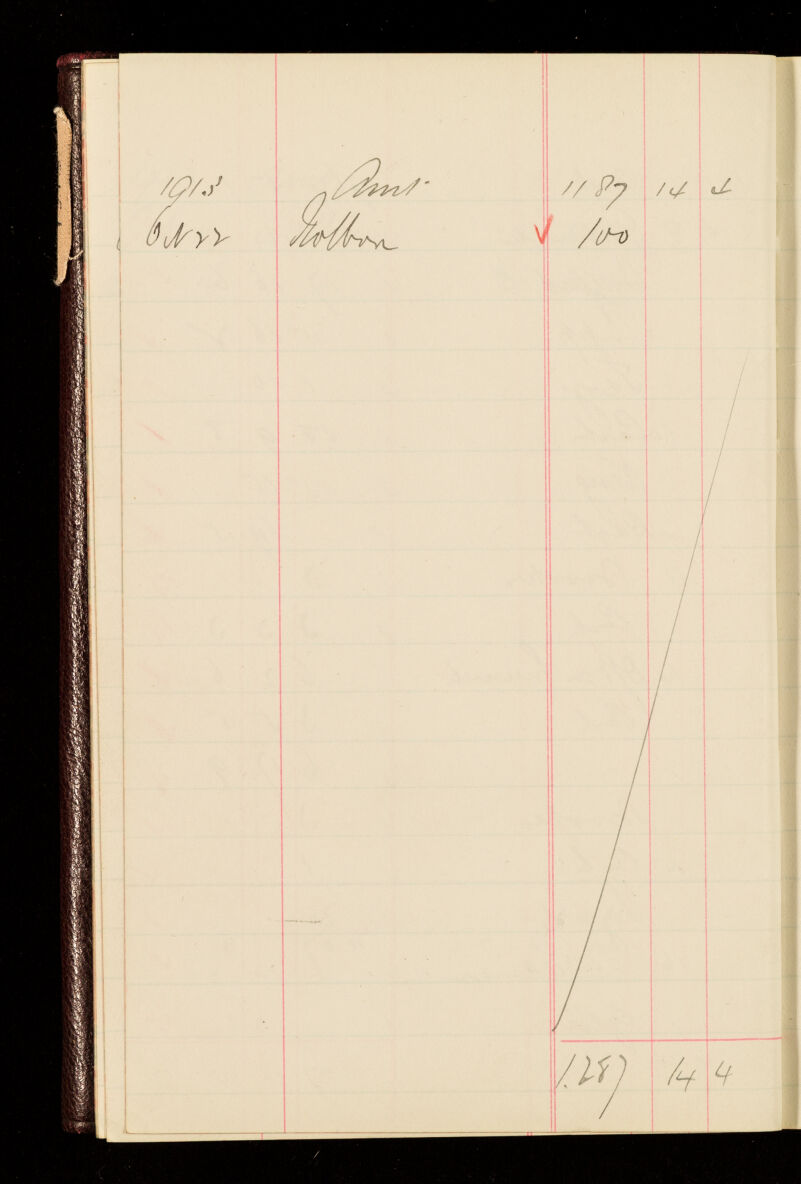 1915 Amt. 1187 14 4
Oct 22 Holborn ✓ 100
1.287 14 4